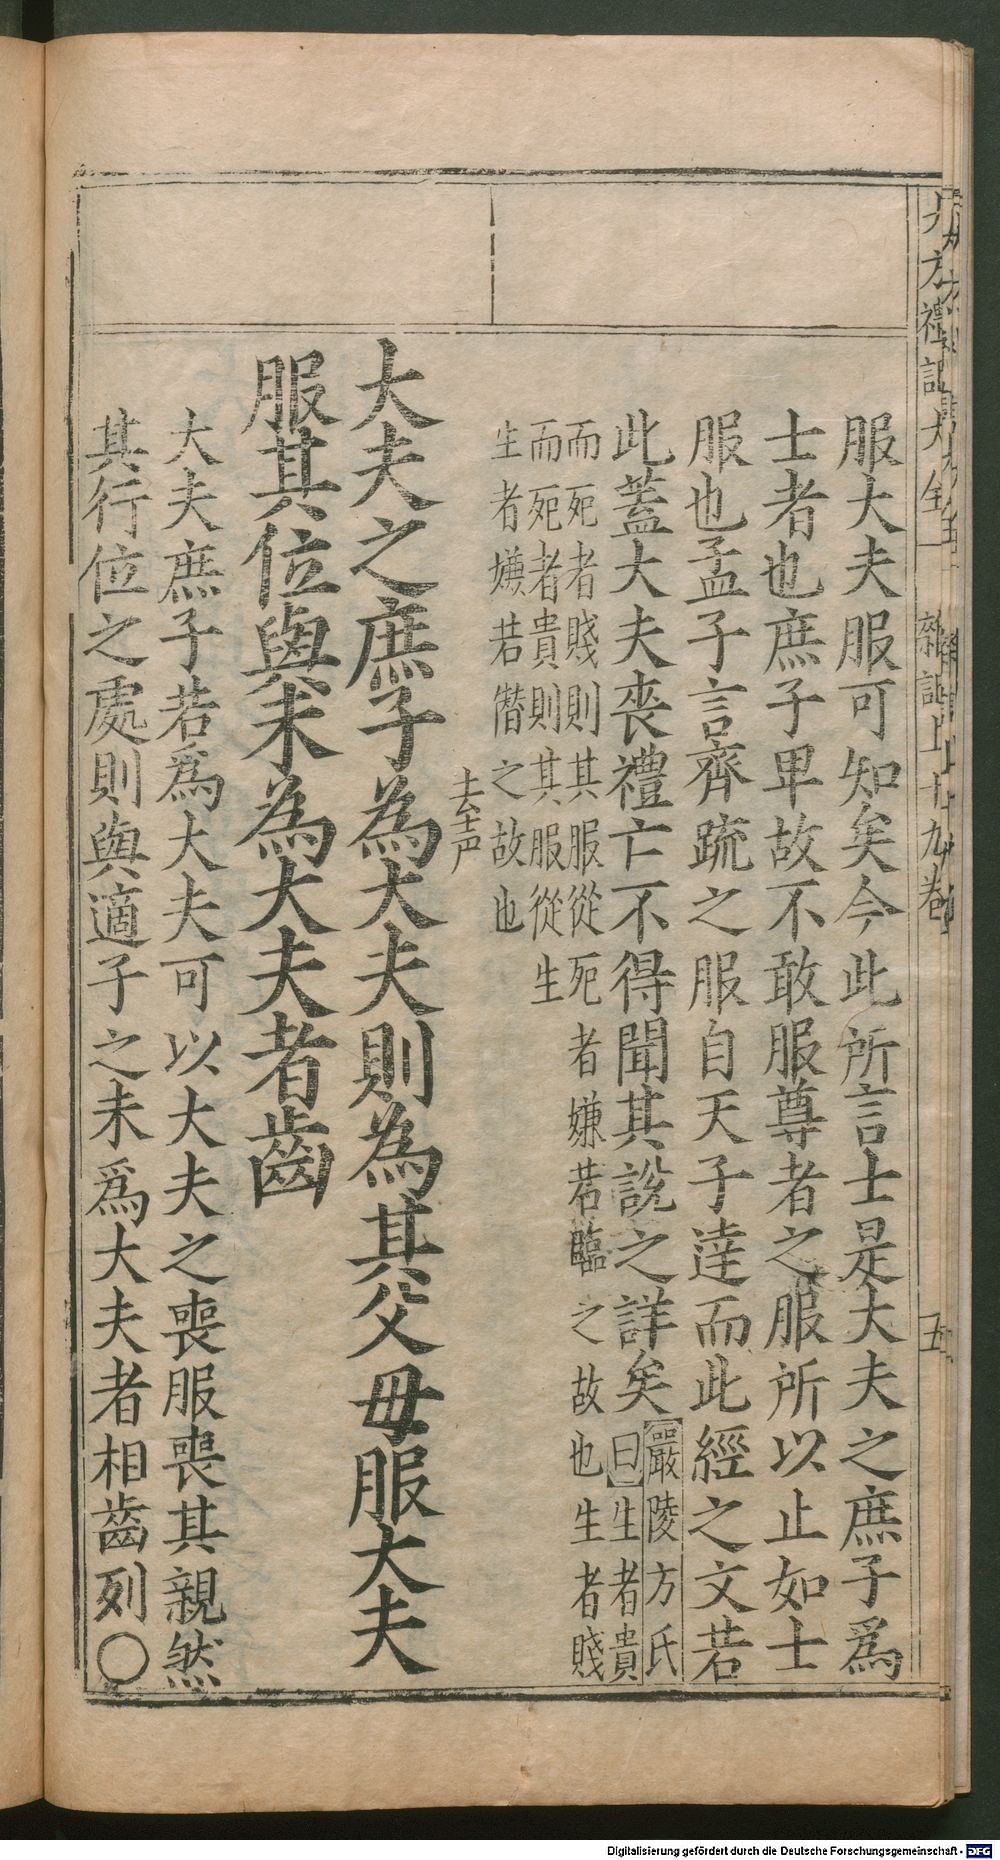 服大夫服可知矣今此所言士是大夫之庶子為
士者也庶子卑故不敢服尊者之服所以止如士
服也孟子言齊疏之服自天子達而此經之文若
此蓋大夫喪禮亡不得聞其說之詳矣嚴陵方氏
曰生者貴
而死者賤則其服從死者嫌若臨之故也生者賤
而死者貴則其服從生
生者嫌若僭之故也
去声
大夫之庶子為大夫則為其父母服大夫
服其位與未為大夫者齒
大夫庶子若爲大夫可以大夫之喪服喪其親然
其行位之處則與適子之未爲大夫者相齒列〇
禮記大全 雜記上十九卷 五
Digitalisierung gefördert durch die Deutsche Forschungsgemeinschaft - DFG